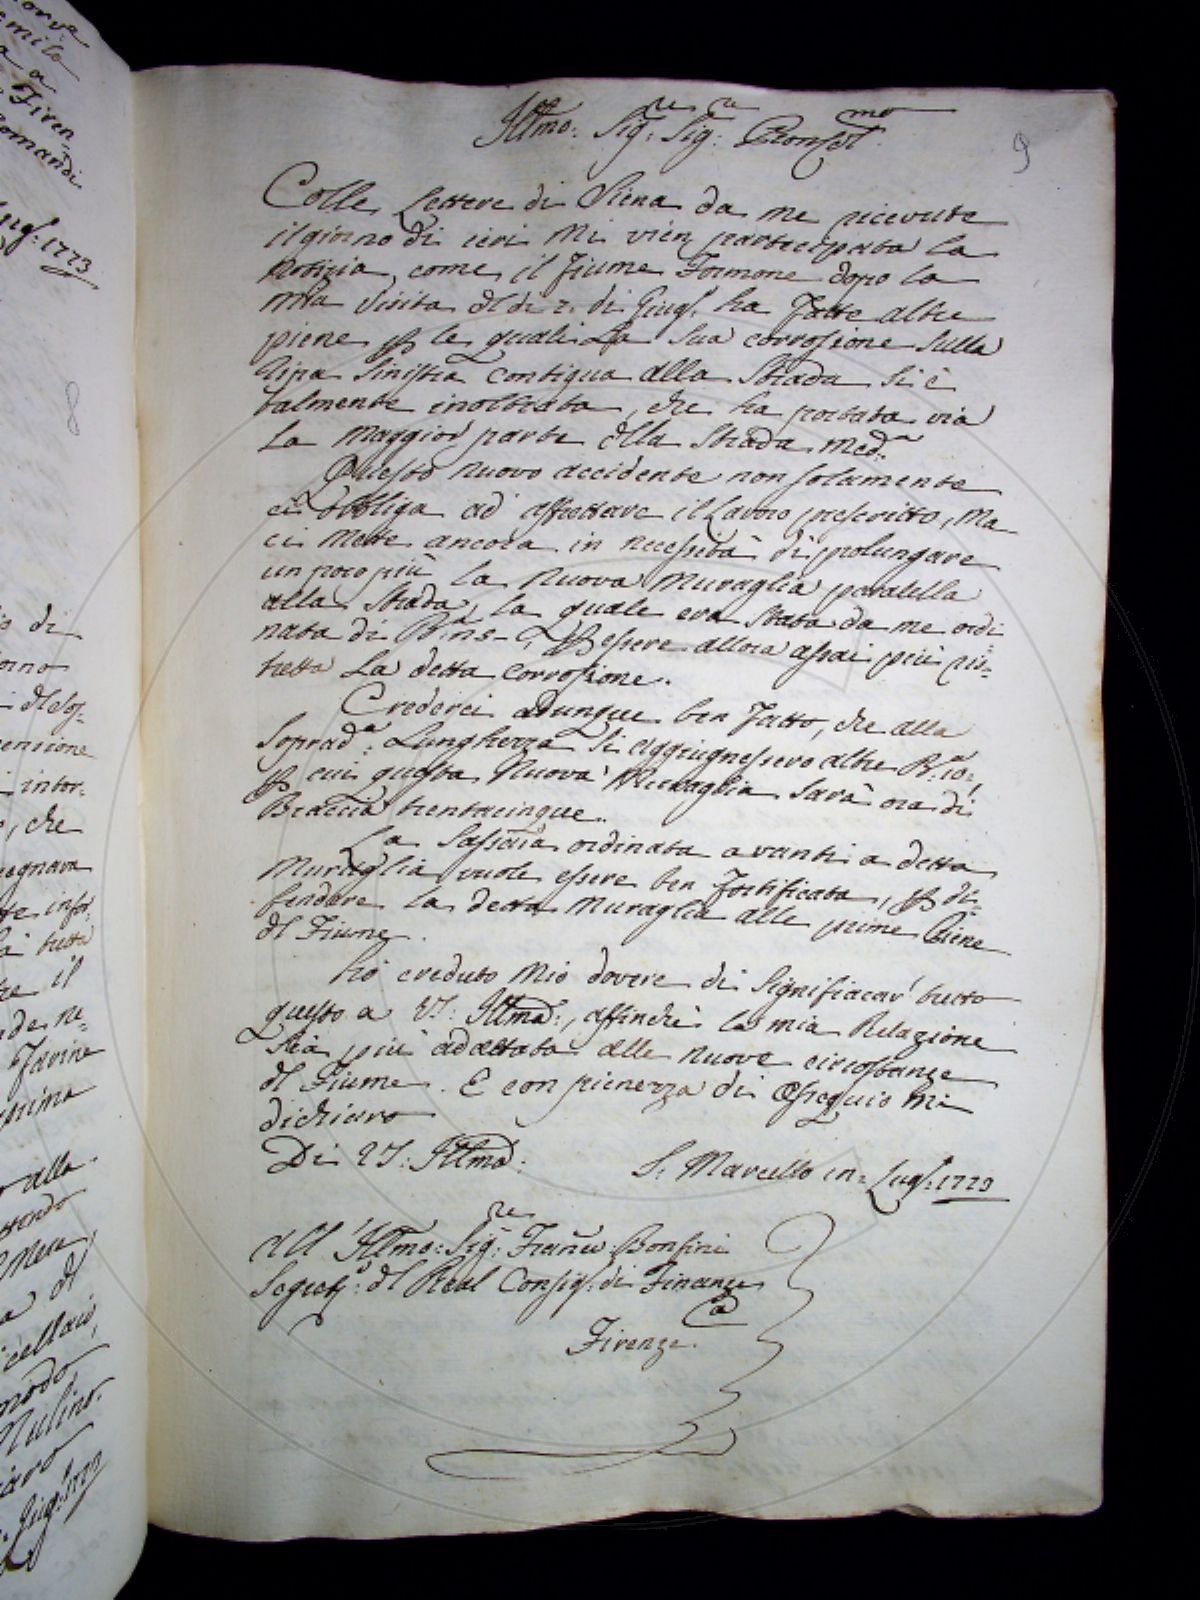 9
Illmo: Sig:re Sig:re Pron Col:mo
Colle Lettere di Siena da me ricevute
il giorno di ieri mi vien partecipata la
Notizia, come il Fiume Formone dopo la
mia Visita dl dì 2. di Giug: ha fatte altre
piene p le quali La sua corrosione sulla
Ripa sinistra contigua alla Strada si è
talmente inoltrata, che ha portata via
la maggior parte della Strada med:a
Questo nuovo accidente non solamente
ci obbliga ad affrettare il Lavoro prescritto, ma
ci mette ancora in necessità di prolungare
un poco più la nuova Muraglia paralella
alla Strada, la quale era stata da me ordi
nata di B:a p essere allora assai più ris=
tretta La detta corrosione.
Crederei adunque ben fatto, che alla
soprad:a Lunghezza si aggiugnessero altre B:a 10,
p cui questa Nuova Muraglia sarà ora di
Braccia trentacinque.
La Sassaia ordinata avanti a detta
Muraglia vuole essere ben fortificata, p di=
fendare la detta Muraglia alle prime Piene
dl Fiume.
Hò creduto mio dovere di significar tutto
questo a VS: Illma:, affinchè la mia Relazione
sia più adattata alle nuove circostanze
dl Fiume. E con pienezza di Ossequio mi
dichiaro
Di VS: Illma:
S. Marcello in= Lug: 1773
All' Illmo: Sig:re Franc:o Bonfini
Segret:o dl Real Consig: di Finanze
Firenze.
8
Firen
Lug: 1773
io di
orno
dl Sos=
intor=
, che
il
alla
dl
Mulino.
Giug: 1773